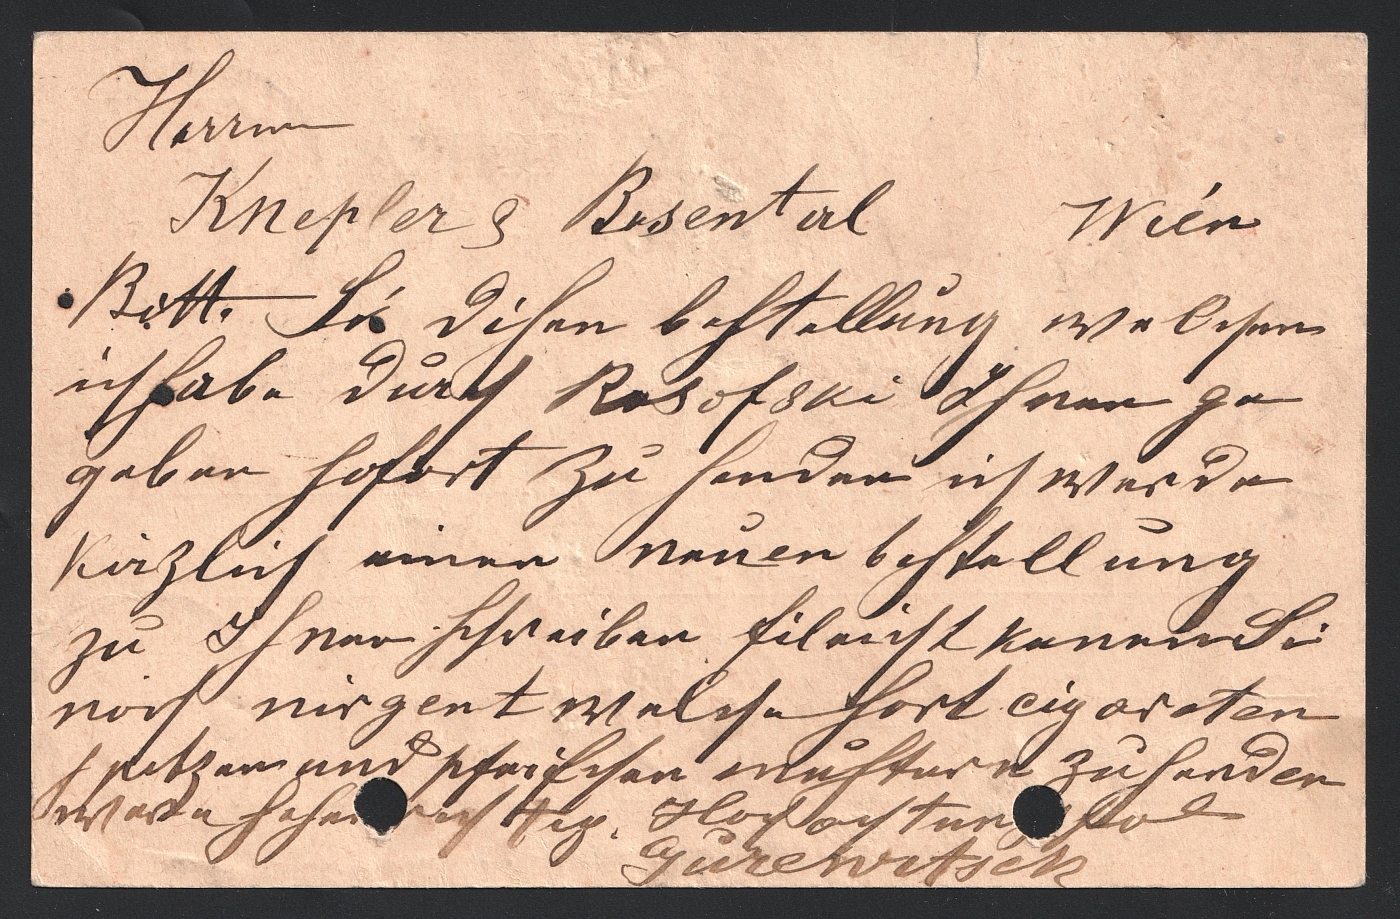 Herrn
Knepler & Rosental Wién
Bitte Sie disen bestellung welchen
ich habe durch Rosofski Ihnen ge
geben sofort zu senden ich werde
kirzlich einen neuen bestellung
zu Ihnen schreiben fileicht kenen Si
noch nirgent welche sort cigareten
spitzen und pfeifchen mustern zu senden
werde sehen Hochachtungsvol
Gurewitsch